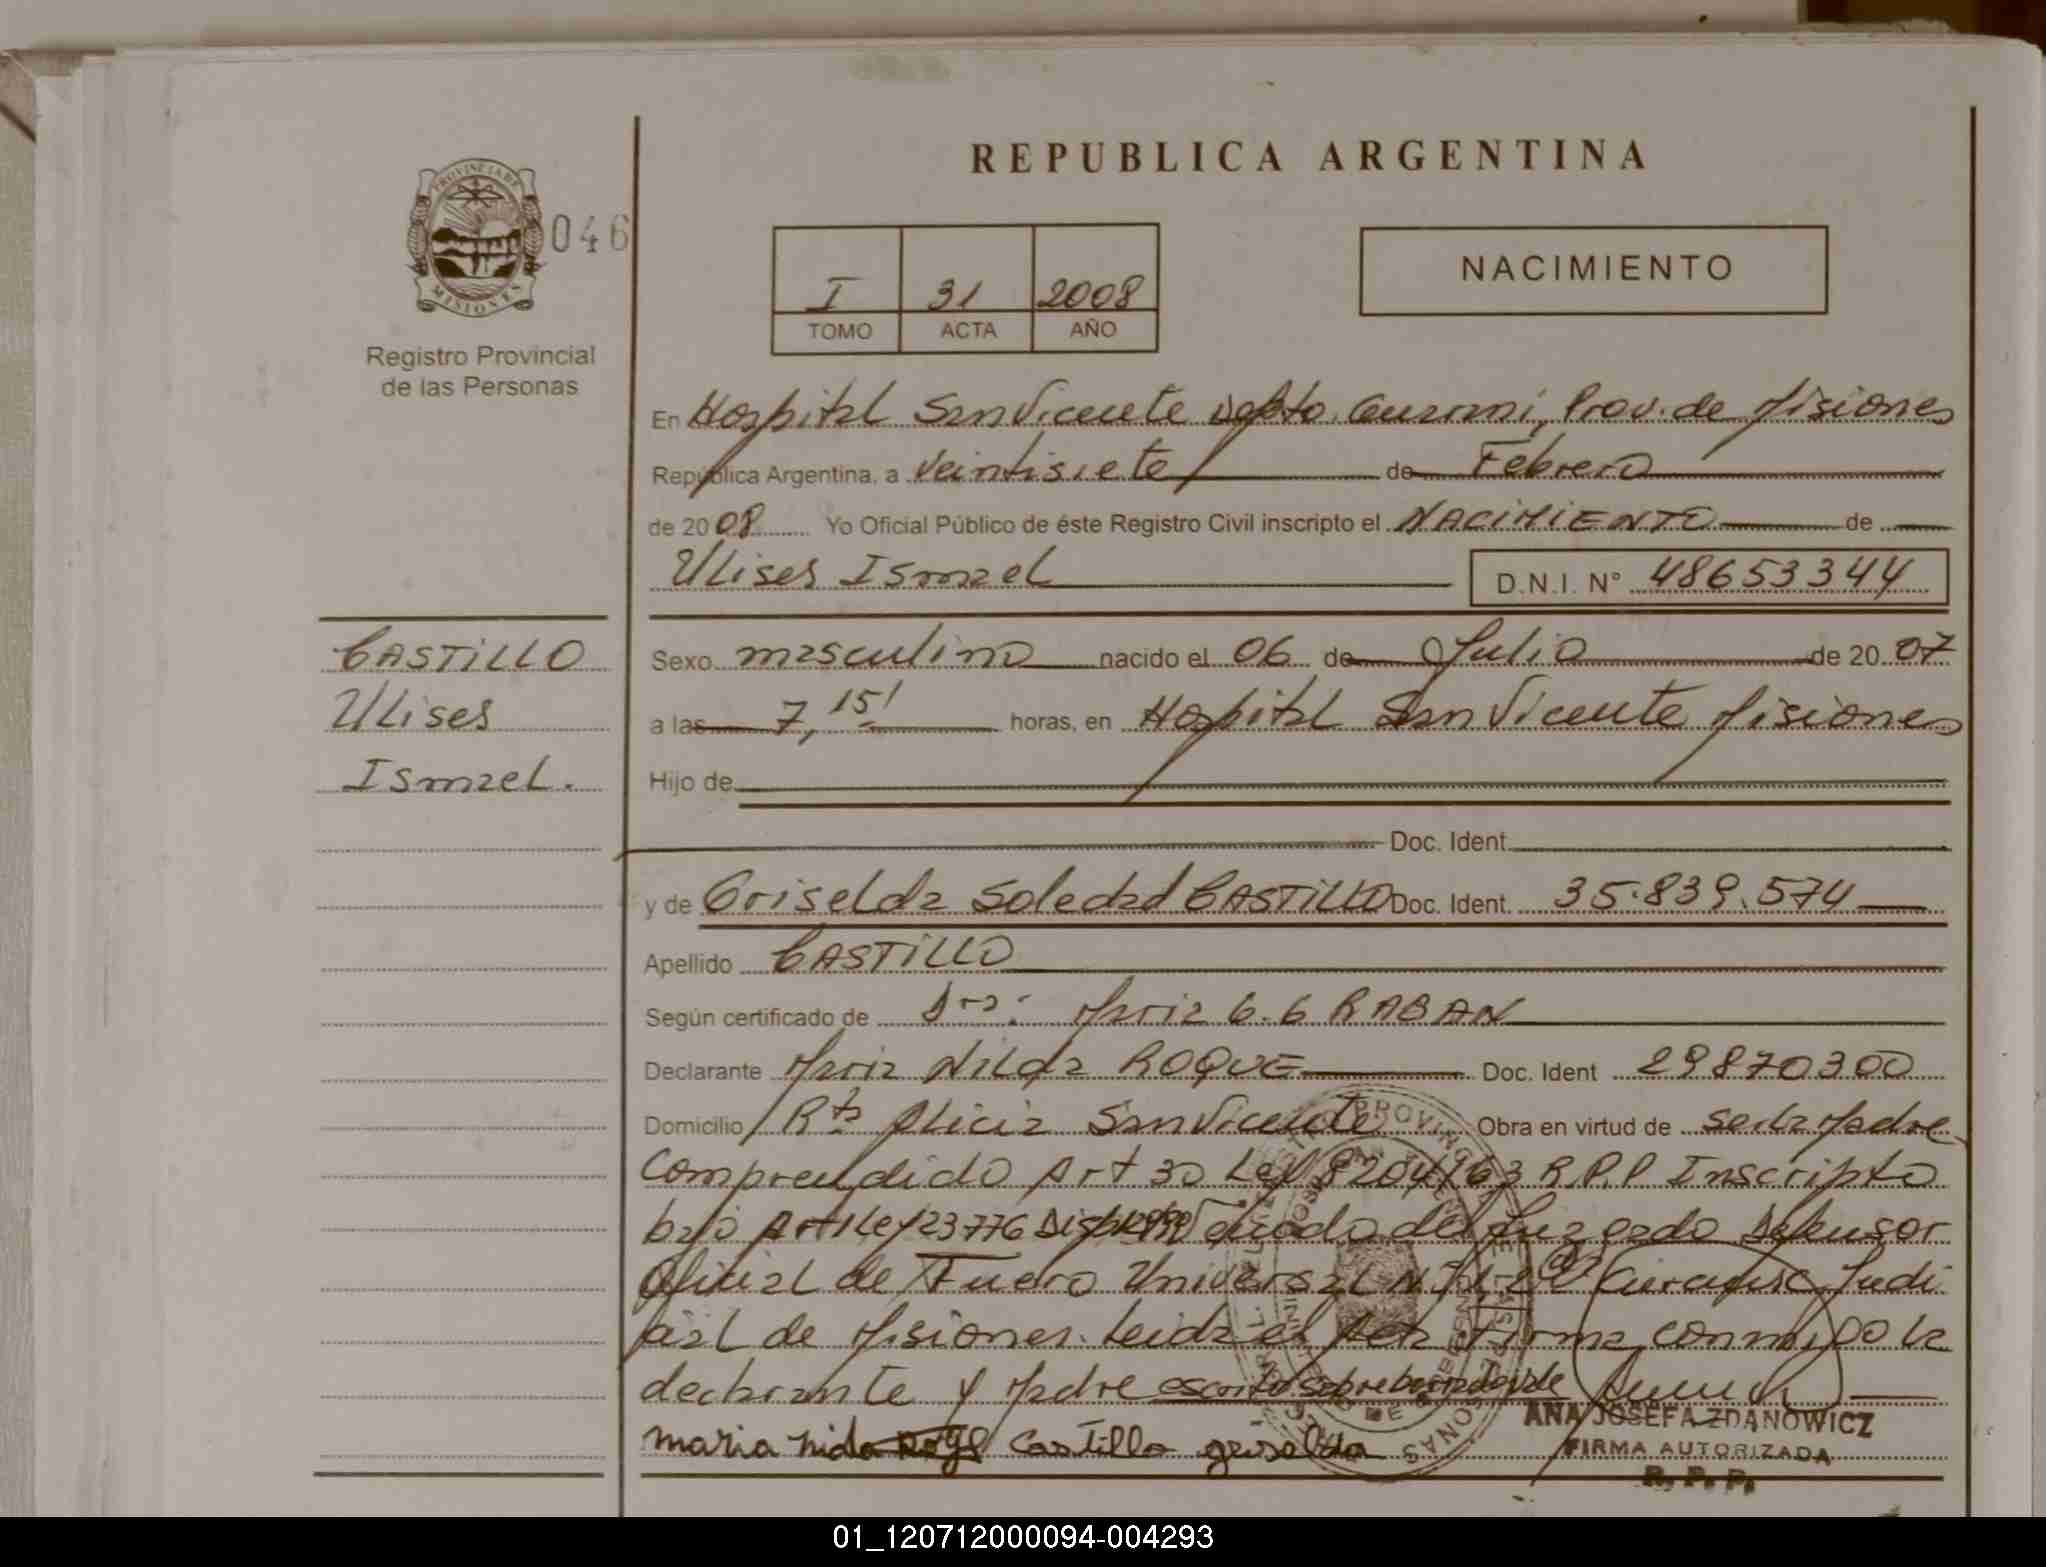 REPUBLICA ARGENTINA
PROVINCIA DE
MISIONES
046
Registro Provincial
de las Personas
I 31 2008
TOMO ACTA AÑO
NACIMIENTO
En Hospital San Vicente Dpto. Guarani, Prov. de Misiones
República Argentina, a veintisiete de Febrero
de 2008 Yo Oficial Público de éste Registro Civil inscripto el NACIMIENTO de
Ulises Ismael D.N.I. N° 48653344
CASTILLO
Ulises
Ismael.
Sexo masculino nacido el 06 de Julio de 2007
a las 7,15' horas, en Hospital San Vicente Misiones
Hijo de
Doc. Ident.
y de Griselda Soledad CASTILLO Doc. Ident. 35.839.574
Apellido CASTILLO
Según certificado de Dra: Maria G. G RABAN
Declarante Maria Nilda ROQUE Doc. Ident 29870300
Domicilio Alicia San Vicente Obra en virtud de ser la Madre
Comprendido Art 30 Ley 8204/63 R.P.P Inscripto
bajo Art 1 Ley 23776 del Juzgado Defensor
Oficial de Fuero Universal Judi
cial de Misiones. Leida el Acta Firma conmigo la
declarante y Madre
maria nida Castillo griselda
ANA JOSEFA ZDANOWICZ
FIRMA AUTORIZADA
R. P. P.
01_120712000094-004293